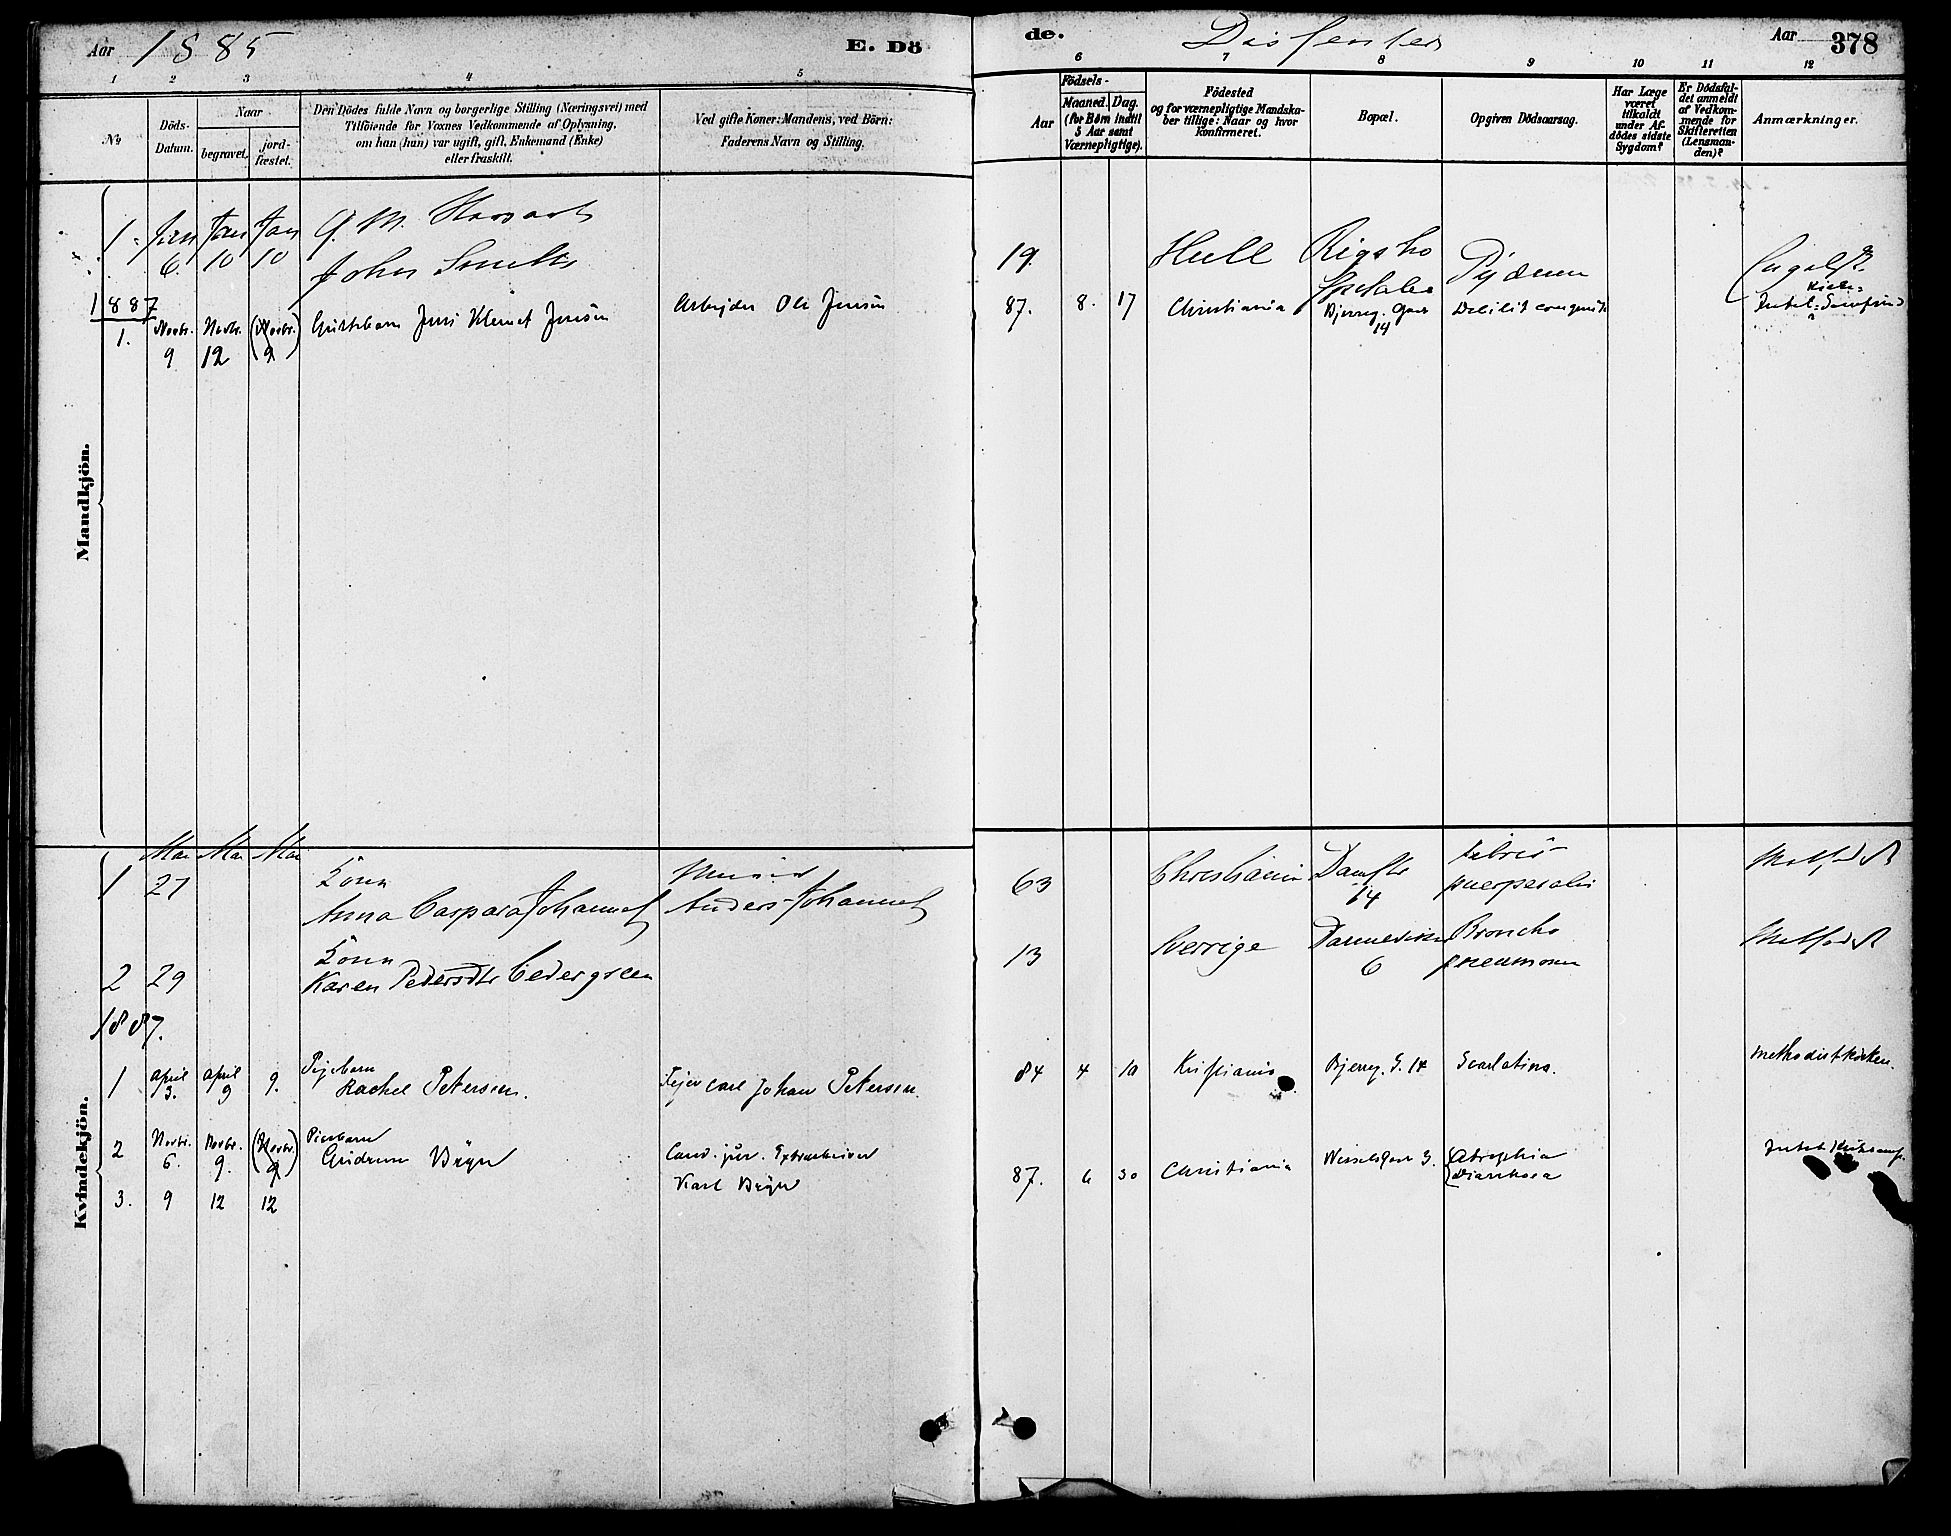 Aar 1885
E. Dö
de.
Dissenter
Aar
378
1 2 3 4 5 6 7 8 9 10 11 12
No
Döds-
Datum.
Naar
begravet.
jord-
fæstet.
Den Dödes fulde Navn og borgerlige Stilling (Næringsvei) med
Tilföiende for Voxnes Vedkommende af Oplysning,
om han (hun) var ugift, gift, Enkemand (Enke)
eller fraskilt.
Ved gifte Koner: Mandens, ved Börn:
Faderens Navn og Stilling.
Aar
Födsels-
Maaned. Dag.
(for Börn indtil
5 Aar samt
Værnepligtige).
Födested
og for værnepligtige Mandska-
ber tillige: Naar og hvor
Konfirmeret.
Bopæl.
Opgiven Dödsaarsag.
Har Læge
været
tilkaldt
under Af-
dödes sidste
Sygdom?
Er Dödsfal-
det anmeldt
af Vedkom-
mende for
Skifteretten
(Lensman-
den)?
Anmærkninger.
Mandkjön.
1. Jan Jan Jan
6. 10 10
John Smith
19. Hull Rigsho
spitalet
Engelsk
1887
1. Novbr. Novbr. (Novbr.)
9 12 9
Gutebarn Jens Klemet Jensen
Arbejder Ole Jensen
87. 8. 17 Christiania Bjerreg. Gade
14
Kvindekjön.
Mai Mai Mai
1 27
Kone
Anna Caspara Johannes
Anders Johannes
63 Christiania Damstr
14
Febris
puerperalis
Methodist
2 29
Kone
Karen Pedersdtr Cedergreen
13 Sverige
6
Broncho
pneumoni
Methodist
1887.
1 April April
3. 9 9.
Pigebarn
Rachel Petersen.
Carl Johan Petersen.
84 4 10 Kristiania Bjerreg. G. 14 Scarlatina.
Methodistkirken.
2 Novbr. Novbr. (Novbr.)
6. 9. 9
Pigebarn
Gudrun Bryn
Cand. jur. Extraskriver
Karl Bryn
87. 6 30 Christiania Wesselsgade 3. Atrophia
Diarrhoea
3. 9 12 12